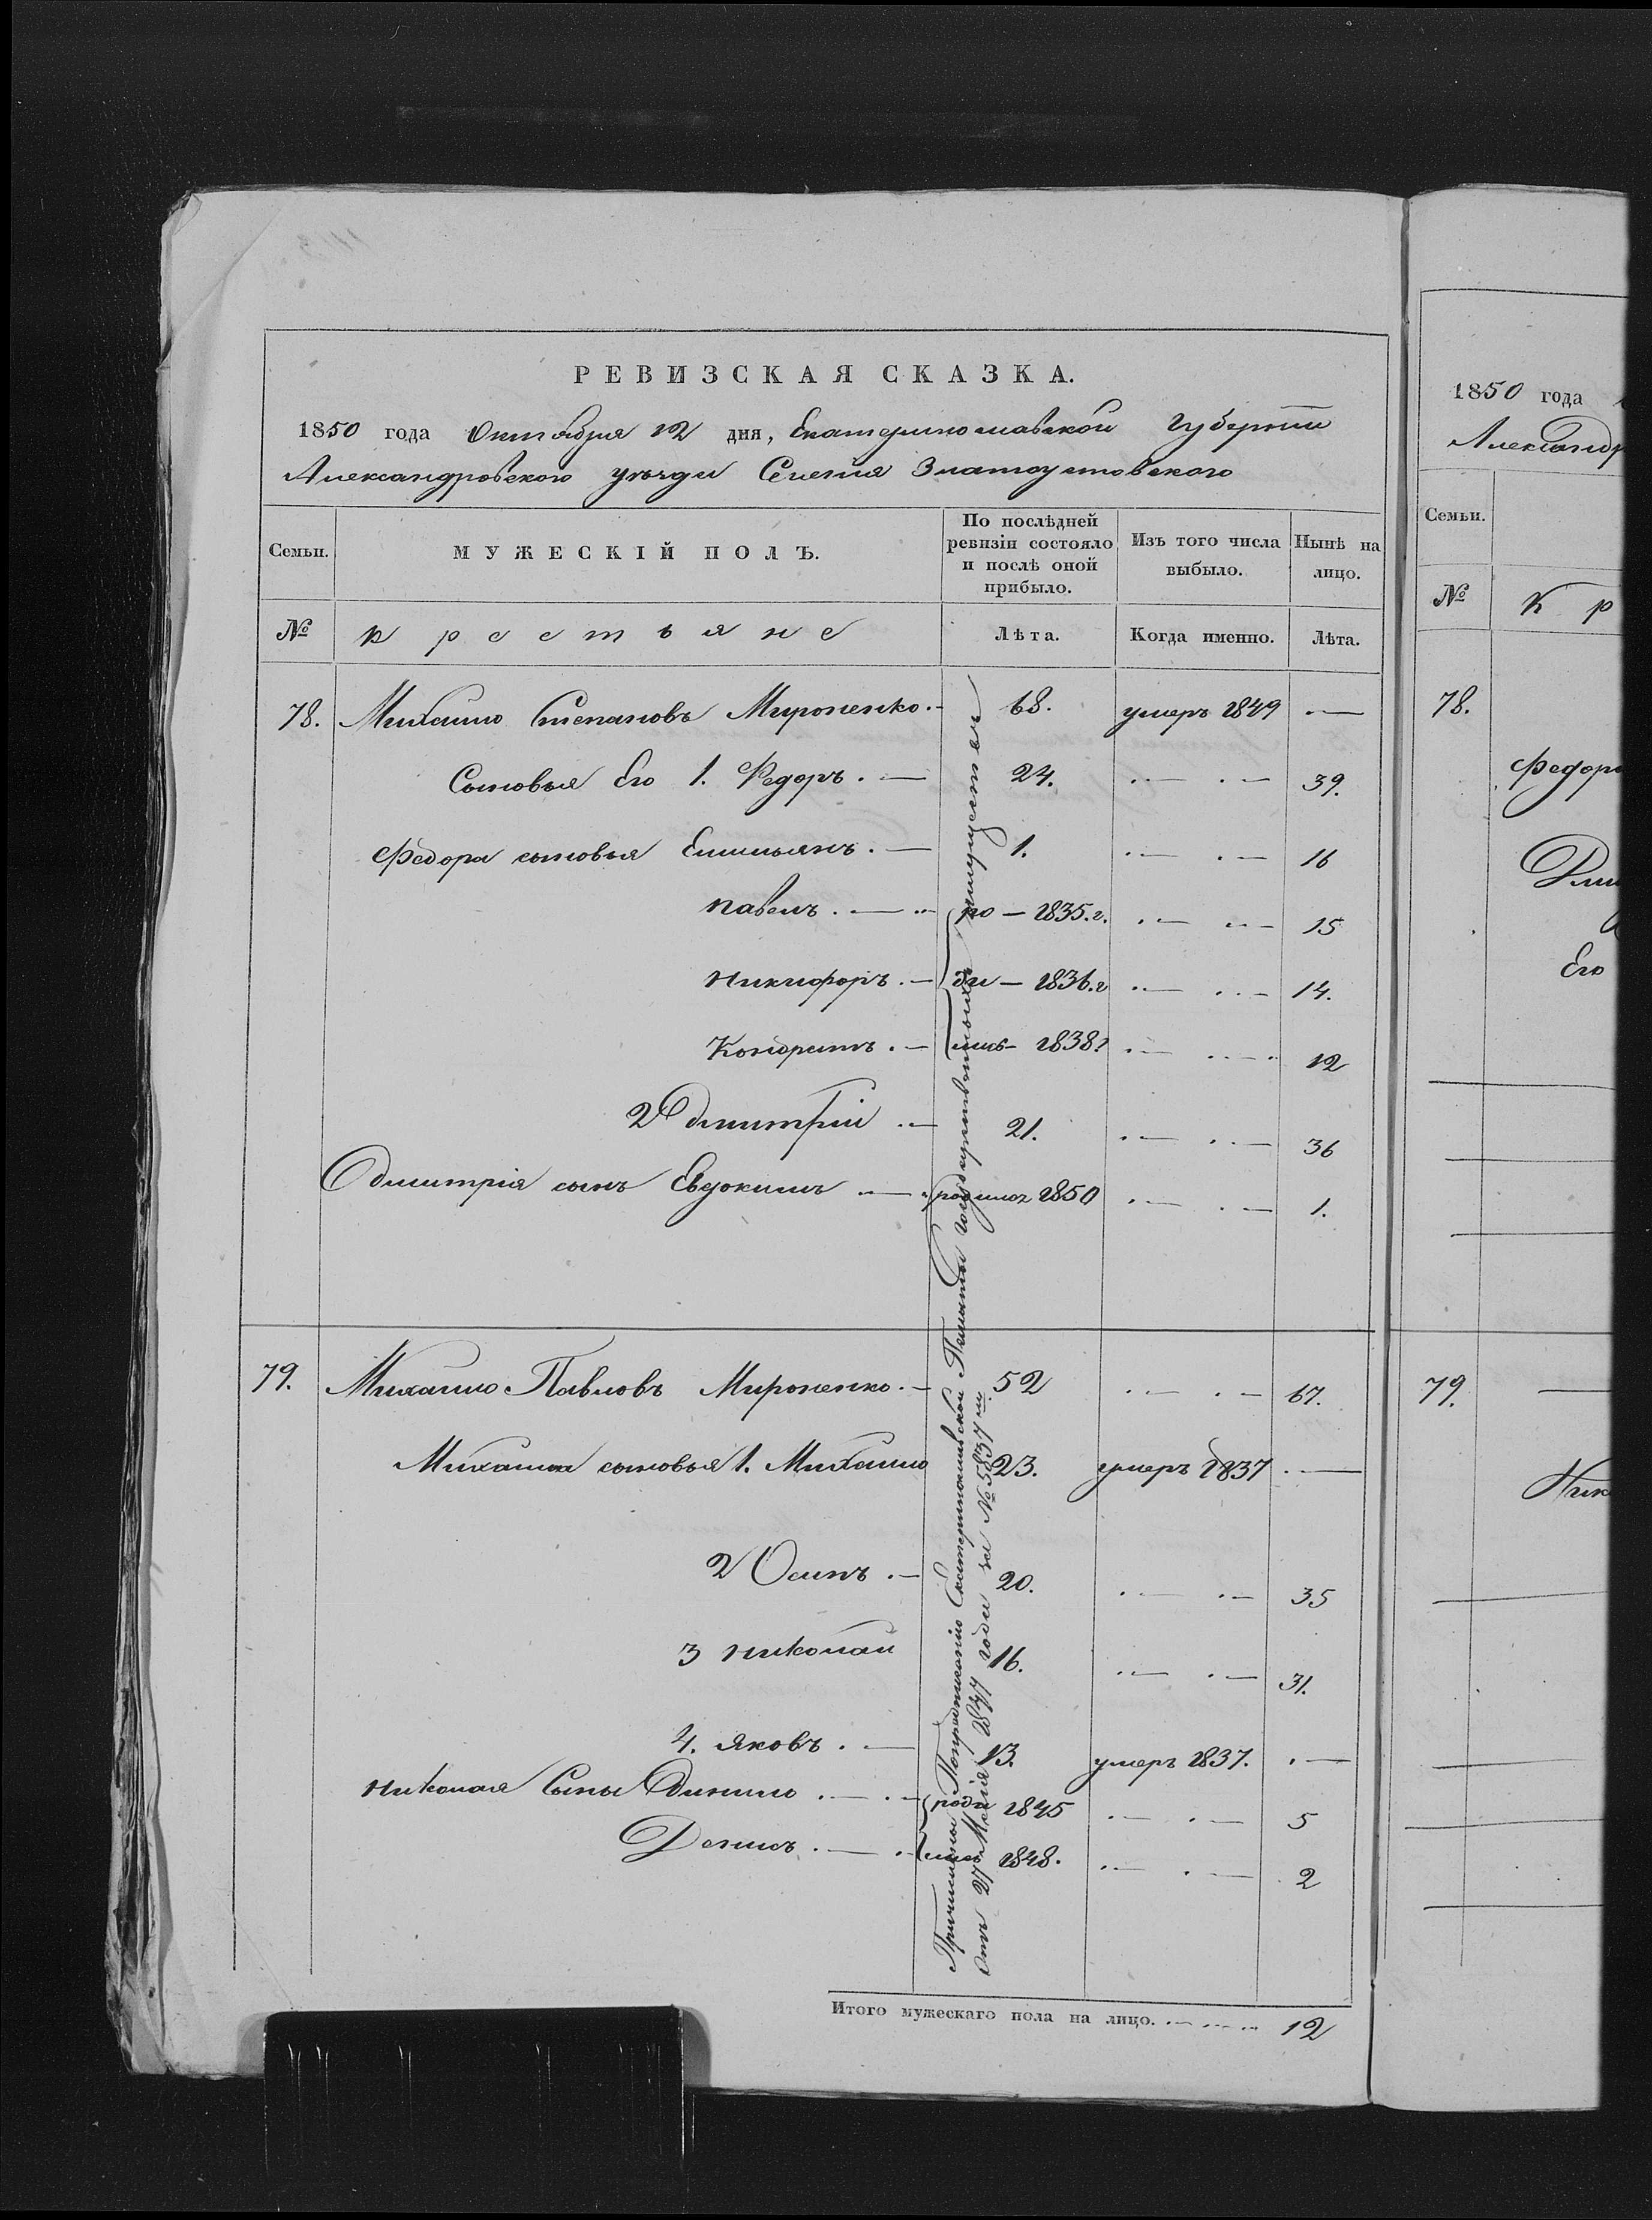 РЕВИЗСКАЯ СКАЗКА.
1850 года Октября 12 дня, Екатеринославской Губернии
Александровского уѣзда Селения Златоустовского
Семьи.
МУЖЕСКІЙ ПОЛЪ.
По послѣдней ревизіи состояло и послѣ оной прибыло.
Изъ того числа выбыло.
Нынѣ на лицо.
№ Крестьяне Лѣта. Когда именно. Лѣта.
78. Михайло Степановъ Мироненко. 68. умеръ 1849 —
Сыновья Его 1. Федоръ. — 24. — — 39.
Федора сыновья Емильянъ. — 1. — — 16
Павелъ. — ро — 1835.г. — — 15
Никифоръ. — ди — 1836.г — — 14.
Кондратъ. — лись — 1838г — — 12
2 Дмитрій — 21. — — 36
Дмитрія сынъ Евдокимъ — родился 1850 — — 1.
79. Михайло Павловъ Мироненко. — 52 — — 67.
Михаила сыновья 1. Михайло 23. умеръ 1837 —
2 Осипъ. — 20. — — 35
3 Николай 16. — — 31.
4. Яковъ. — 13. умеръ 1837. —
Николая Сыны Данило — роди 1845 — — 5
Денисъ. — лись 1848. — — 2
Причислены По предписанію Екатеринославской Палаты государственныхъ имуществъ
Отъ 27 Маія 1847 года за № 5837м
Итого мужескаго пола на лицо. 12
1850 года
Александр
Семьи.
№ К р
78.
Федора
Его
79.
Ник